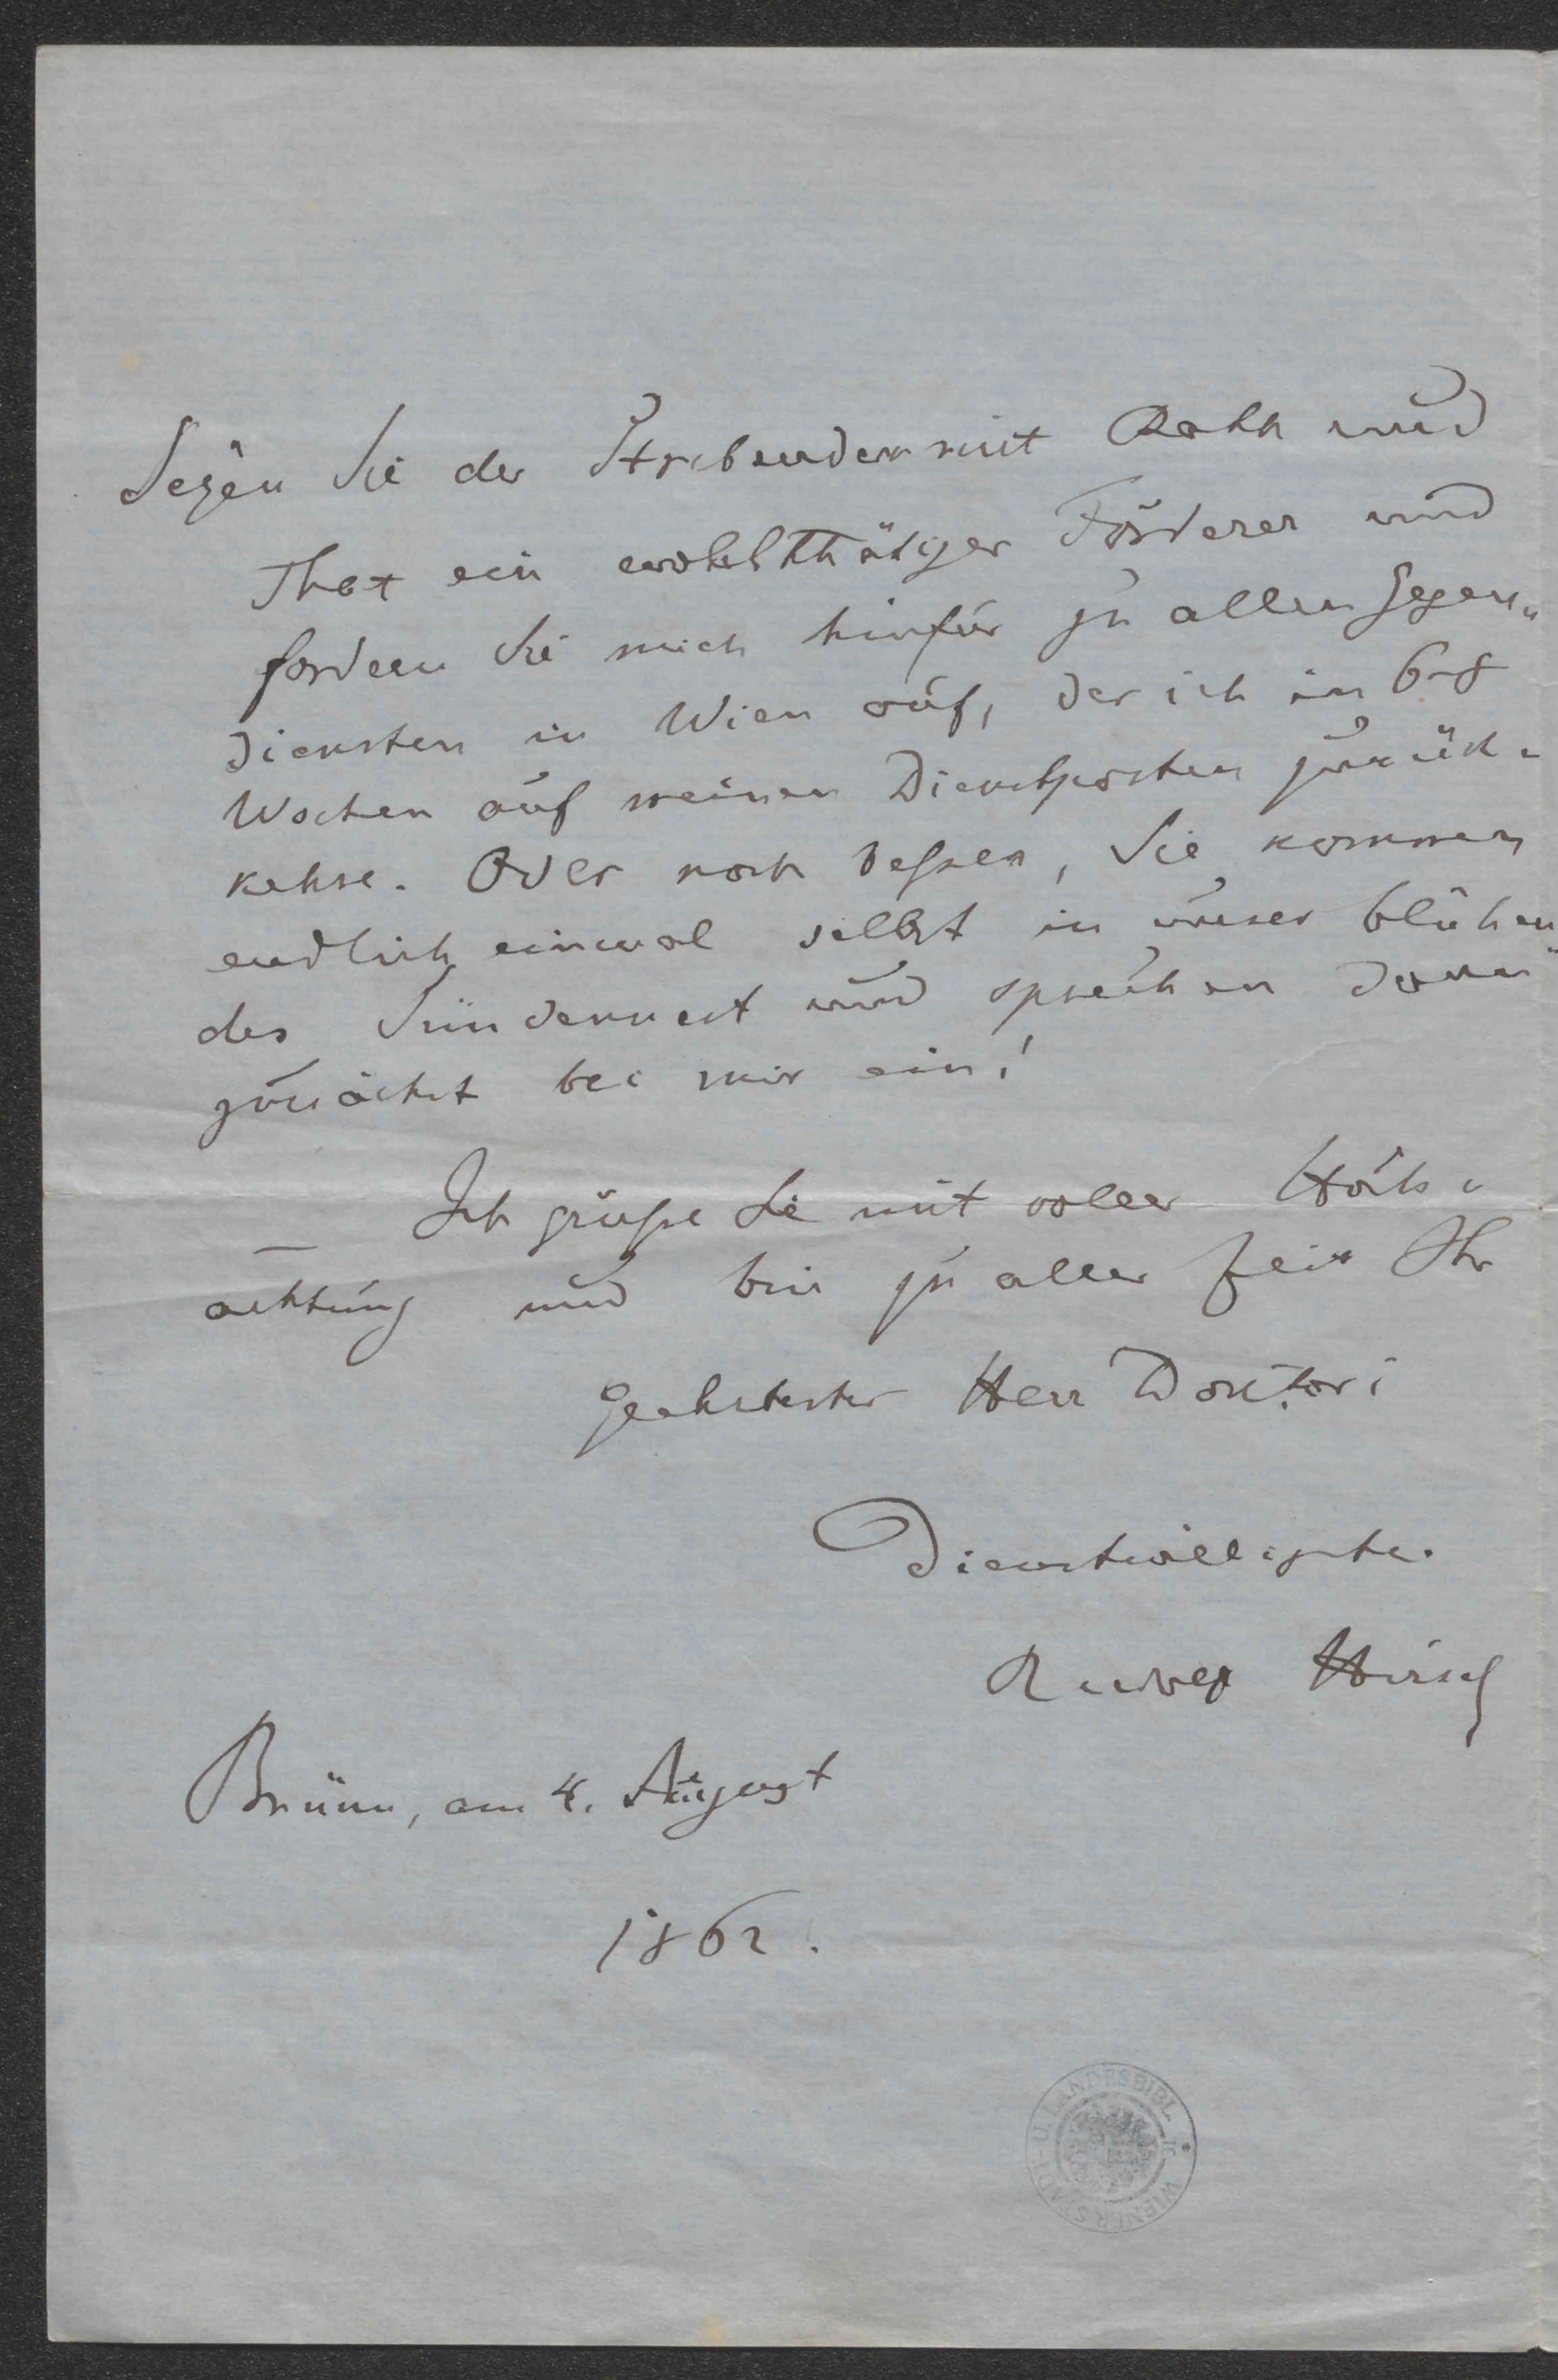 Seyen Sie der Strebenden mit Rath und
That ein wohlthätiger Förderer und
fordern Sie mich hinfür zu allen Gegen„
diensten in Wien auf, der ich in 6-8
Wochen auf meinen Dienstposten zurück-
kehre. Oder noch besser, Sie kommen
endlich einmal selbst in unser blühen„
des Sündennest und sprechen dann
zunächst bei mir ein!
Ich grüße Sie mit voller Hoch-
achtung und bin zu aller Zeit Ihr
Geehrtester Herr Doktor!
Dienstwilligster
Rudolf Hirsch
Brünn, am 4. August
1862.
WIENER STADT- U. LANDESBIBL.